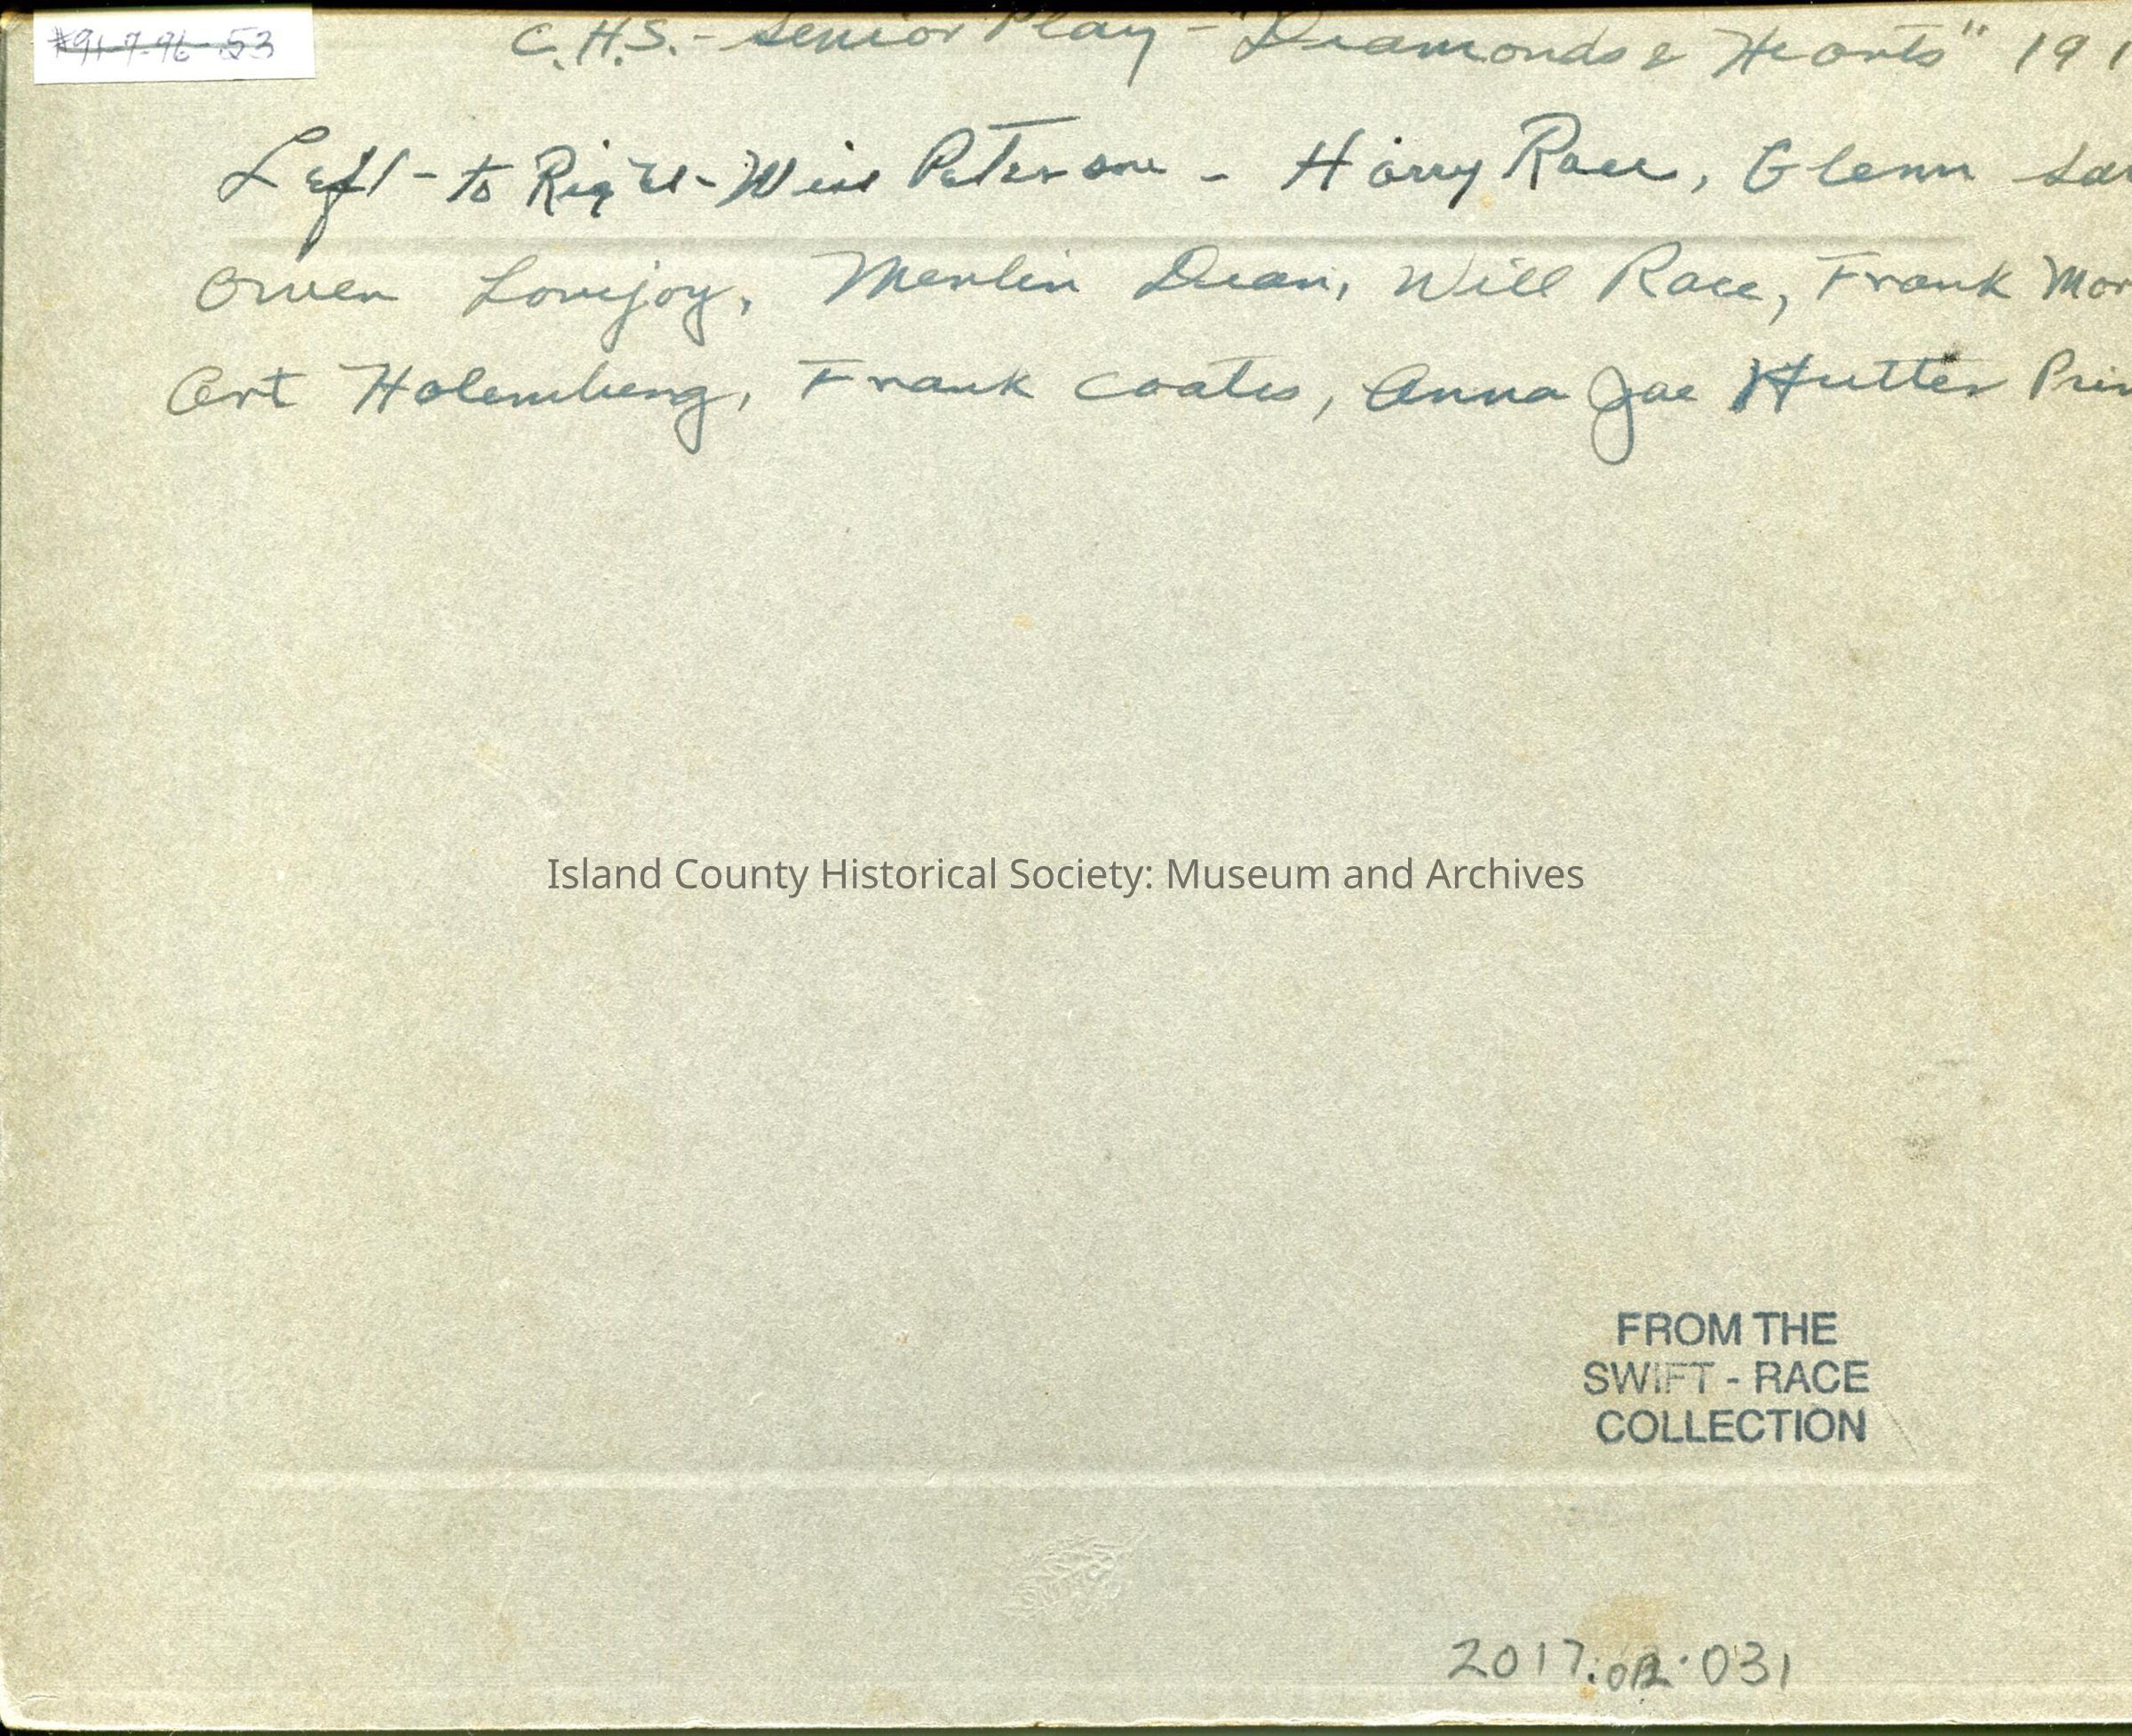 #91-7-96-53
C.H.S. - Senior Play - "Diamonds & Hearts" 191
Left - to Right - Will Peterson - Harry Race, Glenn
Owen Lovejoy, Merlin Dean, Will Race, Frank Mor
Art Holemberg, Frank Coates, Anna Jae Hutter Prin
Island County Historical Society: Museum and Archives
FROM THE
SWIFT - RACE
COLLECTION
2017.02.031